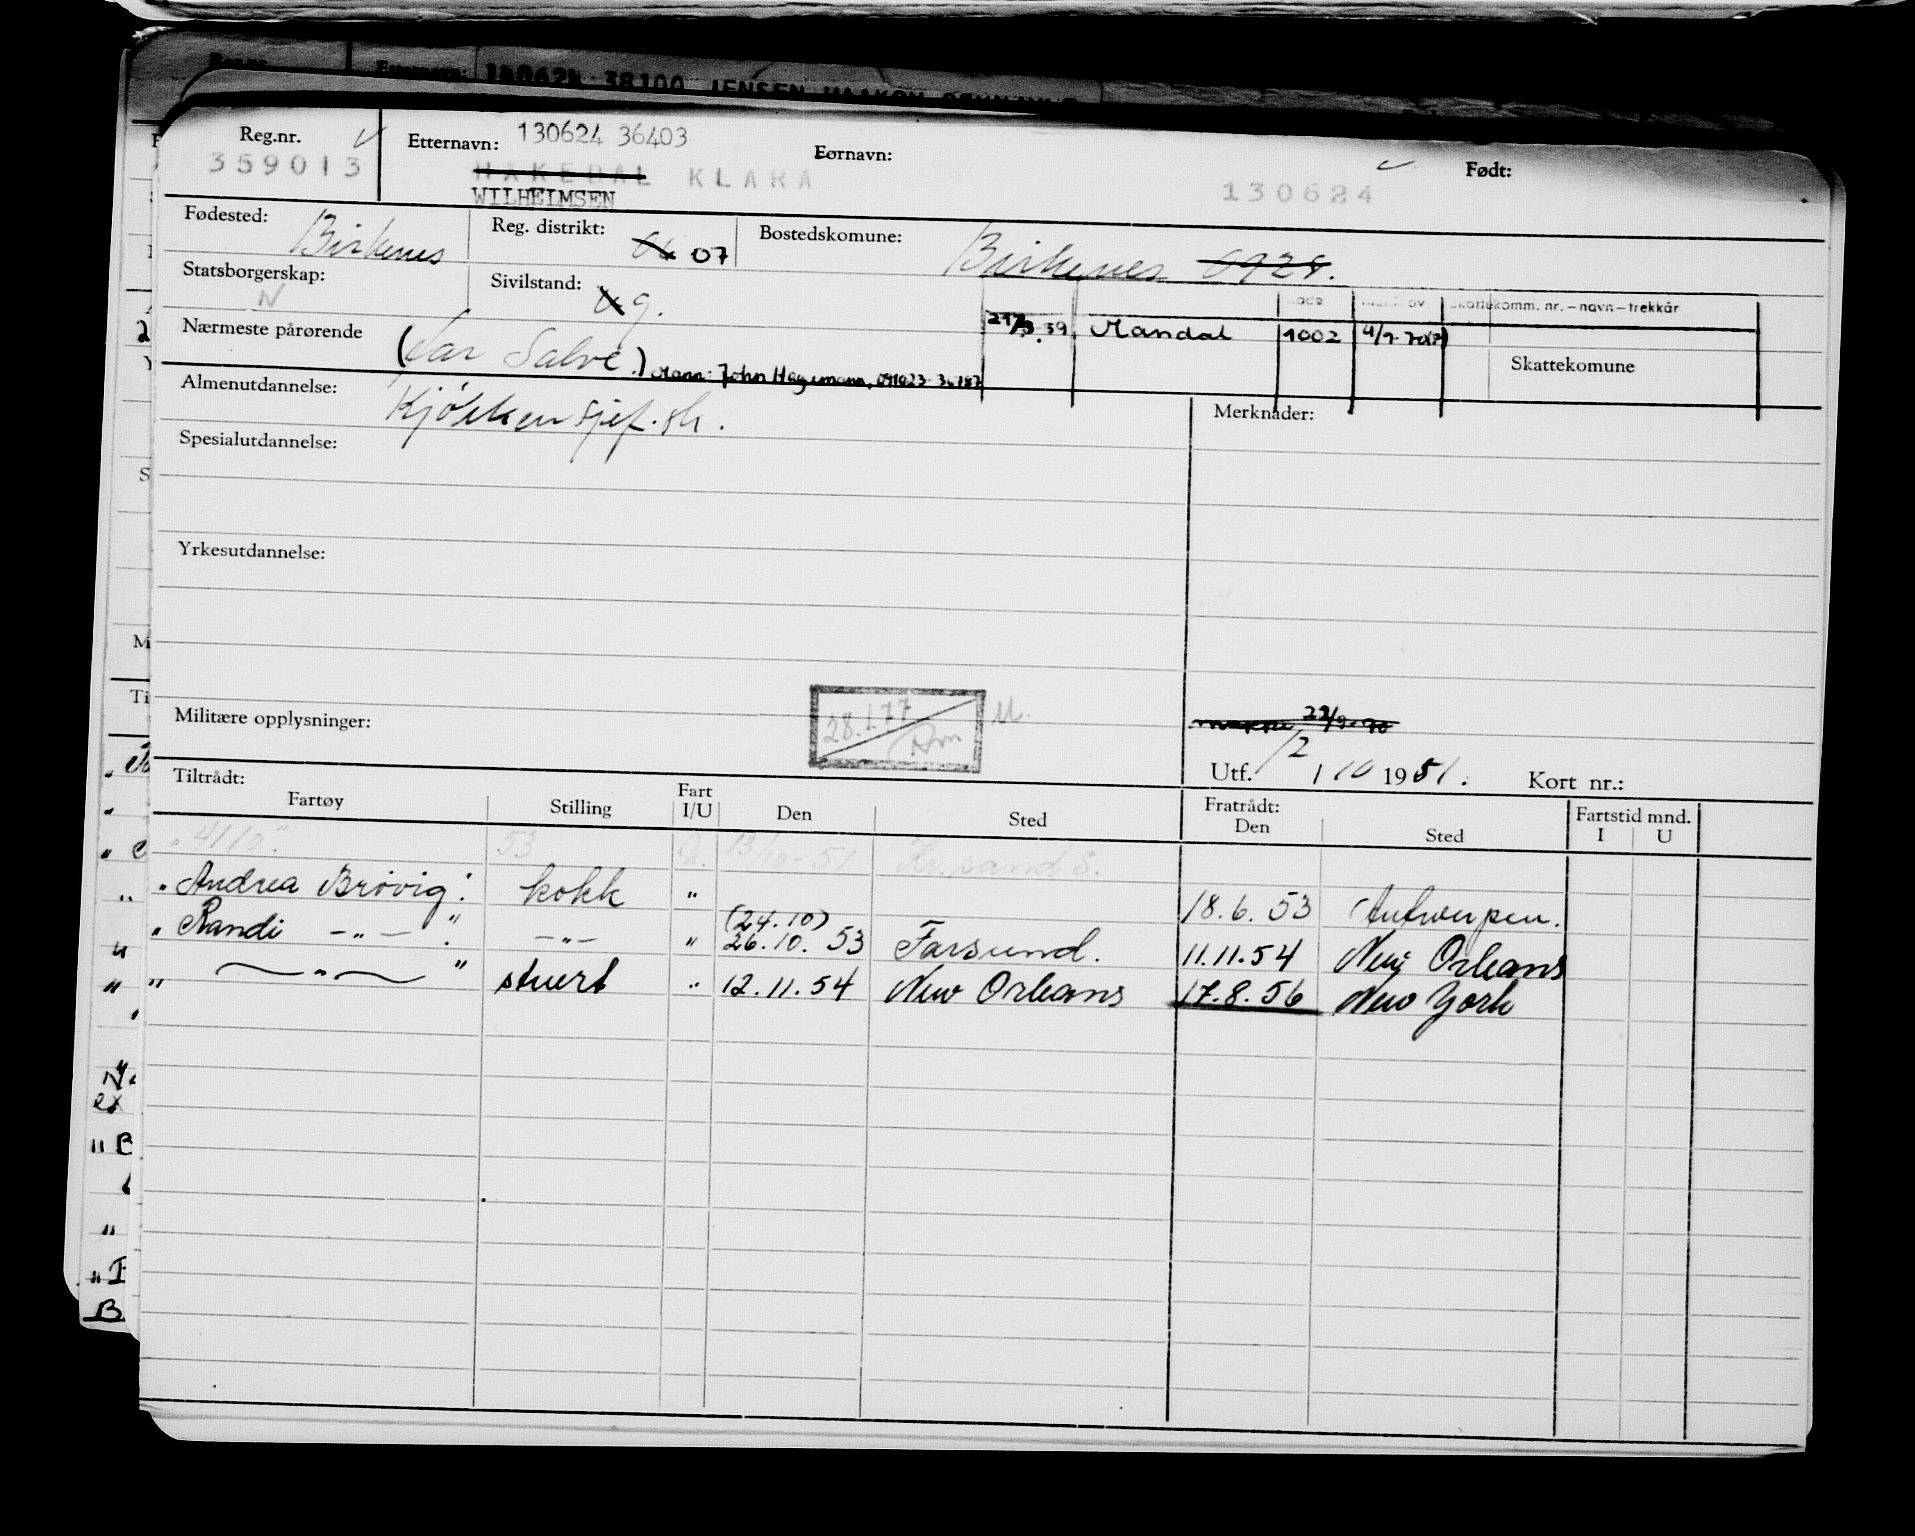 Reg.nr.
359013
Etternavn: 130624 36403
HAKEDAL KLARA
WILHELMSEN
Fornavn:
Født:
130624
Fødested: Birkenes
Reg. distrikt: 07
Bostedskomune: Birkenes 0928.
Statsborgerskap: N
Sivilstand: g.
Kode
Skattekomm. nr. – navn – trekkår
Nærmeste pårørende (Far Salve.) Mann: John Hagemann,
Mandal 1002
Skattekomune
Almenutdannelse: Kjøkkensjef.sk.
Merknader:
Spesialutdannelse:
Yrkesutdannelse:
Militære opplysninger:
28.1.77
22/9-70
Utf. 12/10 1951.
Kort nr.:
Tiltrådt:
Fartøy
Stilling
Fart
I/U
Den
Sted
Fratrådt:
Den
Sted
Fartstid mnd.
I U
"4110" 53 13/10-51 Kr.sand S.
"Andrea Brøvig" kokk " 18.6.53 Antwerpen.
"Randi —"— " —"— " (24.10) 26.10.53 Farsund. 11.11.54 New Orleans
" —"— " stuert " 12.11.54 New Orleans 17.8.56 New York